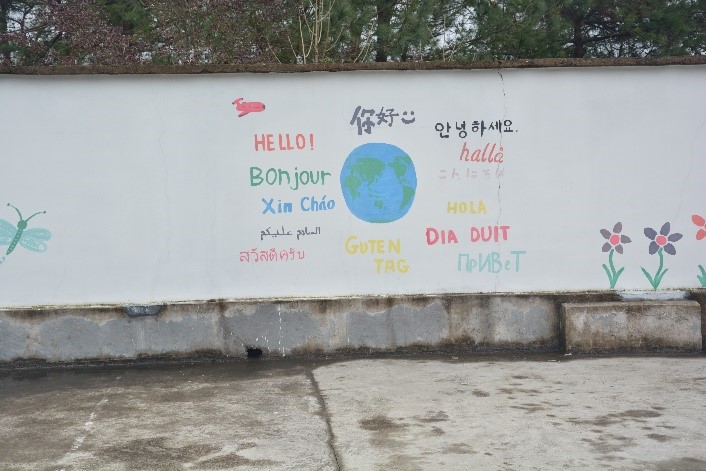 你好
안녕하세요.
HELLO!
hallå
Bonjour
こんにちは
Xin Cháo
HOLA
السلام عليكم
DIA DUIT
สวัสดีครับ
GUTEN
TAG
ПРИВеТ